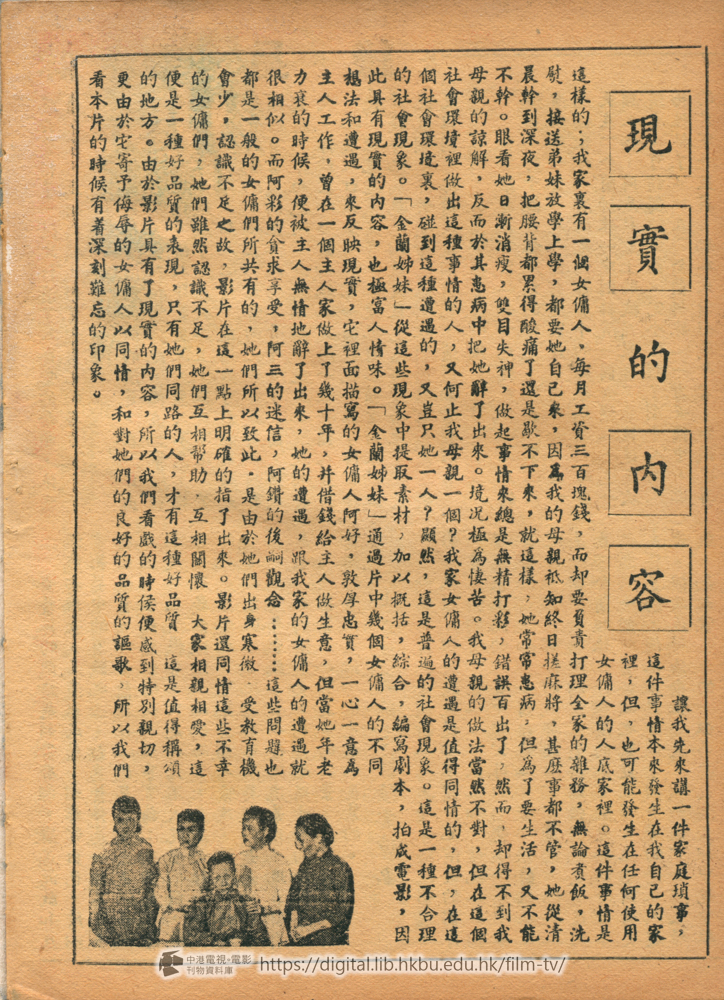 現實的內容
讓我先來講一件家庭瑣事，
這件事情本來發生在我自己的家
裡，但，也可能發生在任何使用
女傭人的人底家裡。這件事情是
這樣的；我家裏有一個女傭人，每月工資三百塊錢，而却要負責打理全家的雜務，無論煮飯，洗
熨，接送弟妹放學上學，都要她自己來，因為我的母親祗知終日搓麻將，甚麼事都不管，她從清
晨幹到深夜，把腰背都累得酸痛了還是歇不下來，就這樣，她常常患病，但為了要生活，又不能
不幹。眼看她日漸消瘦，雙目失神，做起事情來總是無精打彩，錯誤百出了，然而，却得不到我
母親的諒解，反而於其患病中把她辭了出來。境況極為悽苦。我母親的做法當然不對，但在這個
社會環境裡做出這種事情的人，又何止我母親一個？我家女傭人的遭遇是值得同情的，但，在這
個社會環境裏，碰到這種遭遇的，又豈只她一人？顯然，這是普遍的社會現象。這是一種不合理
的社會現象。「金蘭姊妹」從這些現象中提取素材，加以概括，綜合，編寫劇本，拍成電影，因
此具有現實的內容，也極富人情味。「金蘭姊妹」通過片中幾個女傭人的不同
想法和遭遇，來反映現實，它裡面描寫的女傭人阿好，敦厚忠實，一心一意為
主人工作，曾在一個主人家做上了幾十年，并借錢給主人做生意，但當她年老
力衰的時候，便被主人無情地辭了出來，她的遭遇，跟我家的女傭人的遭遇就
很相似。而阿彩的貪求享受，阿三的迷信，阿鑽的後嗣觀念………這些問題也
都是一般的女傭們所共有的，她們所以致此，是由於她們出身寒微，受教育機
會少，認識不足之故，影片在這一點上明確的指了出來。影片還同情這些不幸
的女傭們，她們雖然認識不足，她們互相幫助，互相關懷，大家相親相愛，這
便是一種好品質的表現，只有她們同路的人，才有這種好品質，這是值得稱頌
的地方。由於影片具有了現實的內容，所以我們看戲的時候便感到特別親切，
更由於它寄予侮辱的女傭人以同情，和對她們的良好的品質的謳歌，所以我們
看本片的時候有着深刻難忘的印象。
中港電視·電影
刊物資料庫
https://digital.lib.hkbu.edu.hk/film-tv/